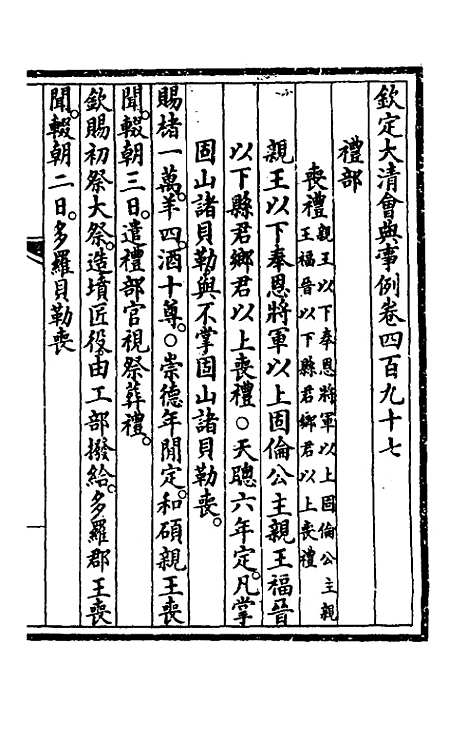 欽定大清會典事例卷四百九十七
禮部
喪禮親王以下奉恩將軍以上固倫公主親
王福晉以下縣君鄉君以上喪禮
親王以下奉恩將軍以上固倫公主親王福晉
以下縣君鄉君以上喪禮○天聰六年定。凡掌
固山諸貝勒與不掌固山諸貝勒喪。
賜楮一萬。羊四。酒十尊。○崇德年閒定。和碩親王喪
聞。輟朝三日。遣禮部官視祭葬禮。
欽賜初祭大祭。造墳匠役由工部撥給。多羅郡王喪
聞。輟朝二日。多羅貝勒喪